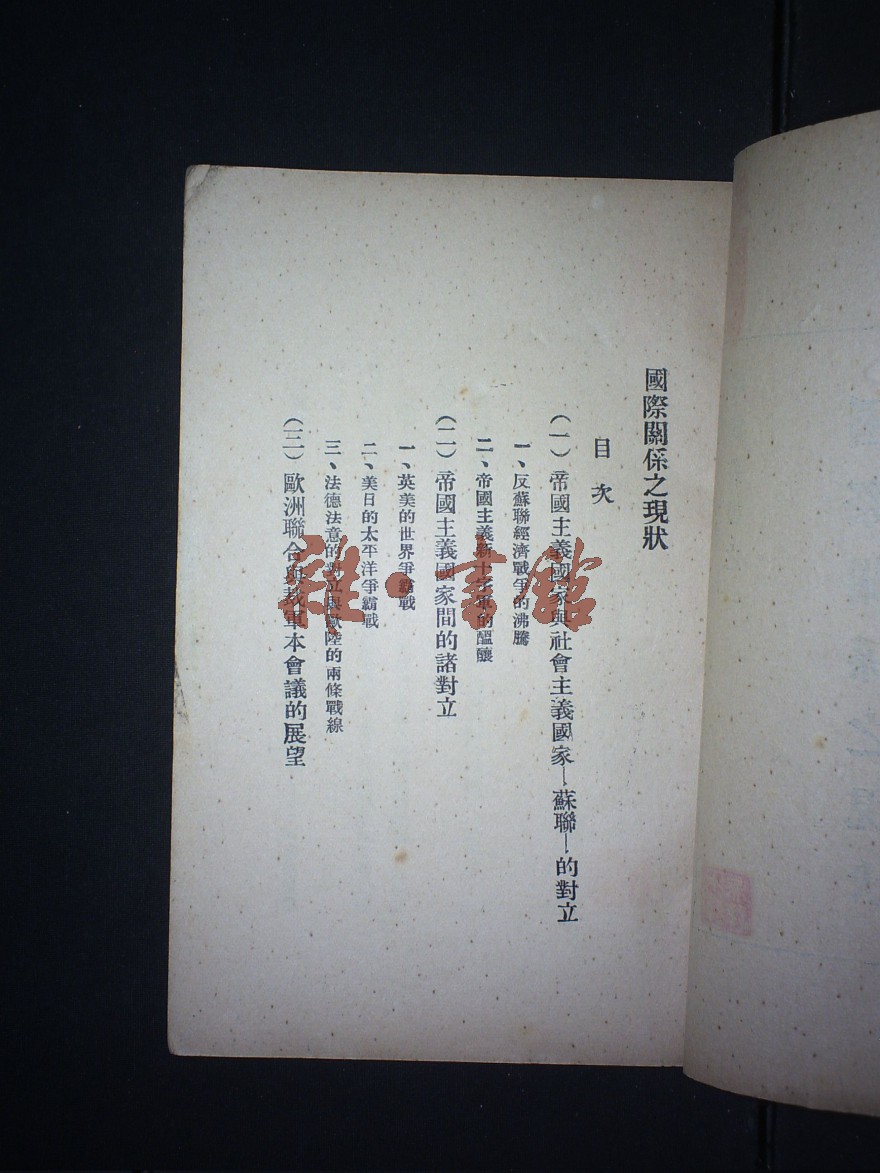 國際關係之現狀
目次
(一)帝國主義國家與社會主義國家—蘇聯—的對立
一、反蘇聯經濟戰爭的沸騰
二、帝國主義新十字軍的醞釀
(二)帝國主義國家間的諸對立
一、英美的世界爭霸戰
二、美日的太平洋爭霸戰
三、法德法意的對立與歐陸的兩條戰線
(三)歐洲聯合與裁軍本會議的展望
雜·書館